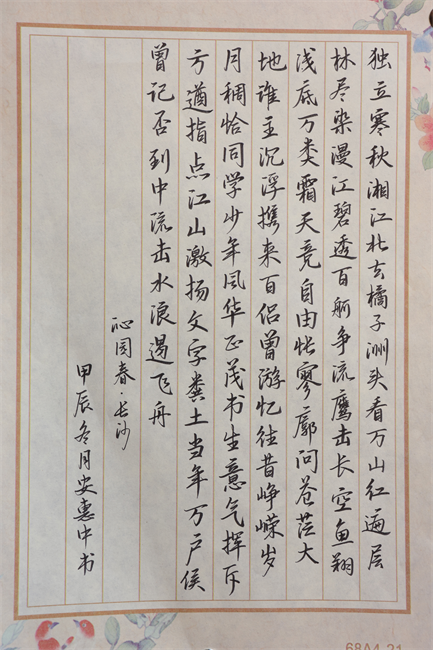 独立寒秋湘江北去橘子洲头看万山红遍层
林尽染漫江碧透百舸争流鹰击长空鱼翔
浅底万类霜天竞自由怅寥廓问苍茫大
地谁主沉浮携来百侣曾游忆往昔峥嵘岁
月稠恰同学少年风华正茂书生意气挥斥
方遒指点江山激扬文字粪土当年万户侯
曾记否到中流击水浪遏飞舟
沁园春·长沙
甲辰冬月安惠中书
68A4-21